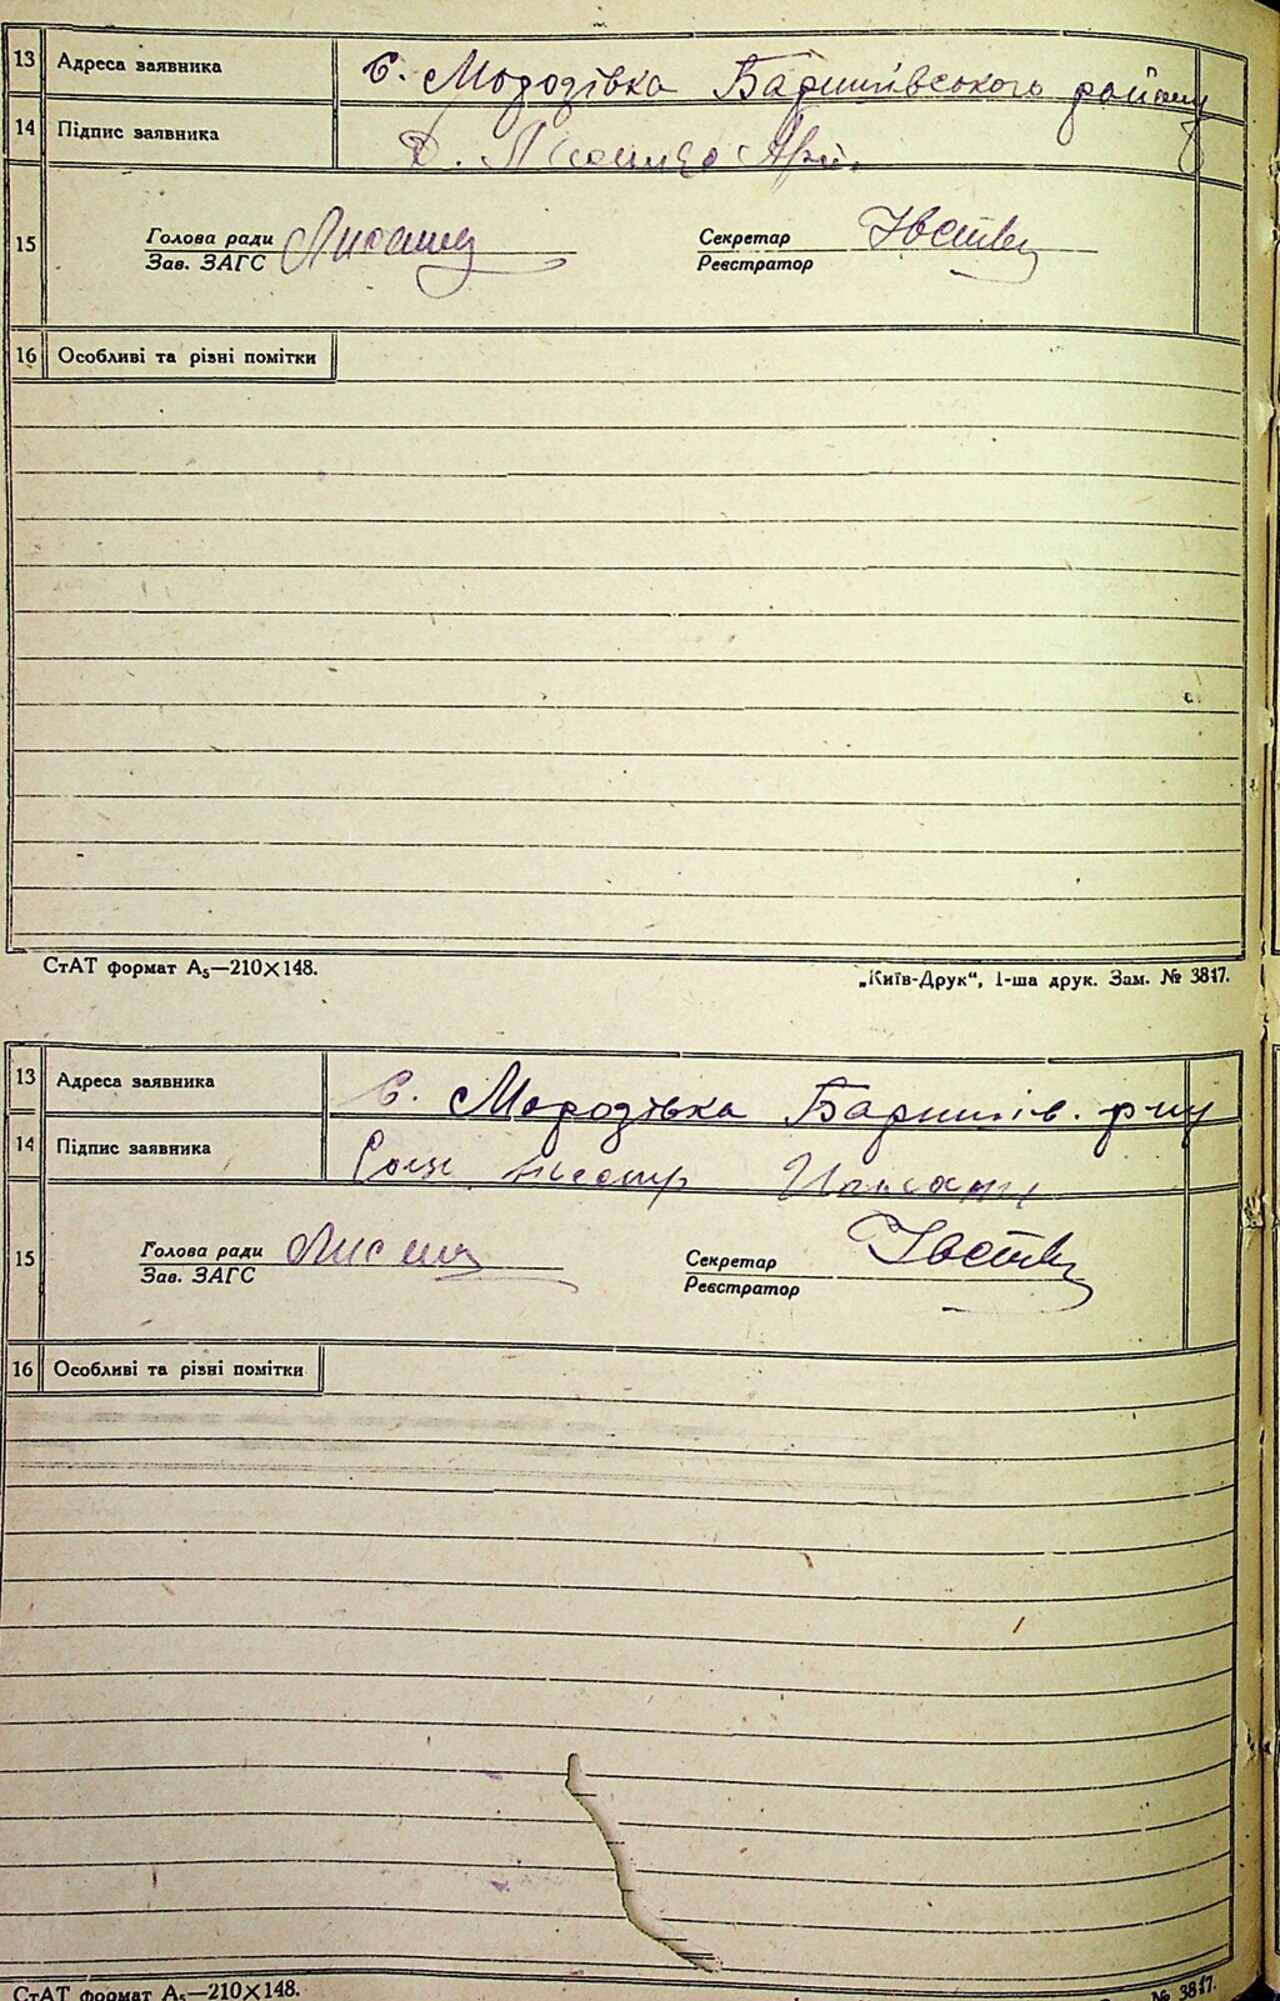 13 Адреса заявника с. Морозівка Баришівського району
14 Підпис заявника
15 Голова ради Секретар
Зав. ЗАГС Реєстратор
16 Особливі та різні помітки
СтАТ формат А₅—210×148. „Київ-Друк“, 1-ша друк. Зам. № 3817.
13 Адреса заявника с. Морозівка Баришів. р-ну
14 Підпис заявника
15 Голова ради Секретар
Зав. ЗАГС Реєстратор
16 Особливі та різні помітки
СтАТ формат А₅—210×148. № 3817.